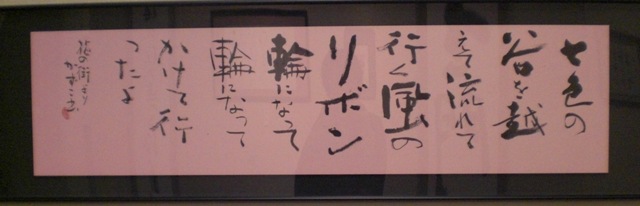 七色の
谷を越
えて流れて
行く風の
リボン
輪になって
輪になって
かけて行
ったよ
花の街より